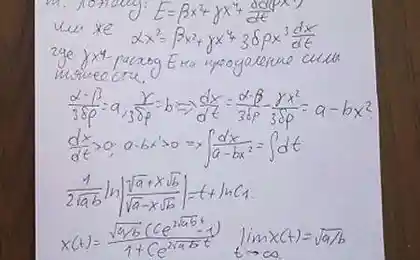 т. Поэтому: E=βx²+γx⁴+ δd(ρx³)/dt
или же αx²=βx²+γx⁴+3δρx³ dx/dt
где γx⁴-расход E на преодоление силы
тяжести.
(α-β)/3δρ=a, γ/3δρ=b => dx/dt=(α-β)/3δρ - γx²/3δρ = a-bx²
dx/dt>0, a-bx²>0 => ∫dx/(a-bx²)=∫dt
1/(2√ab) ln|(√a+x√b)/(√a-x√b)|=t+lnC₁.
x(t)=√a/b(Ce^(2√ab t)-1)/(1+Ce^(2√ab t)) lim x(t)=√a/b
t→∞